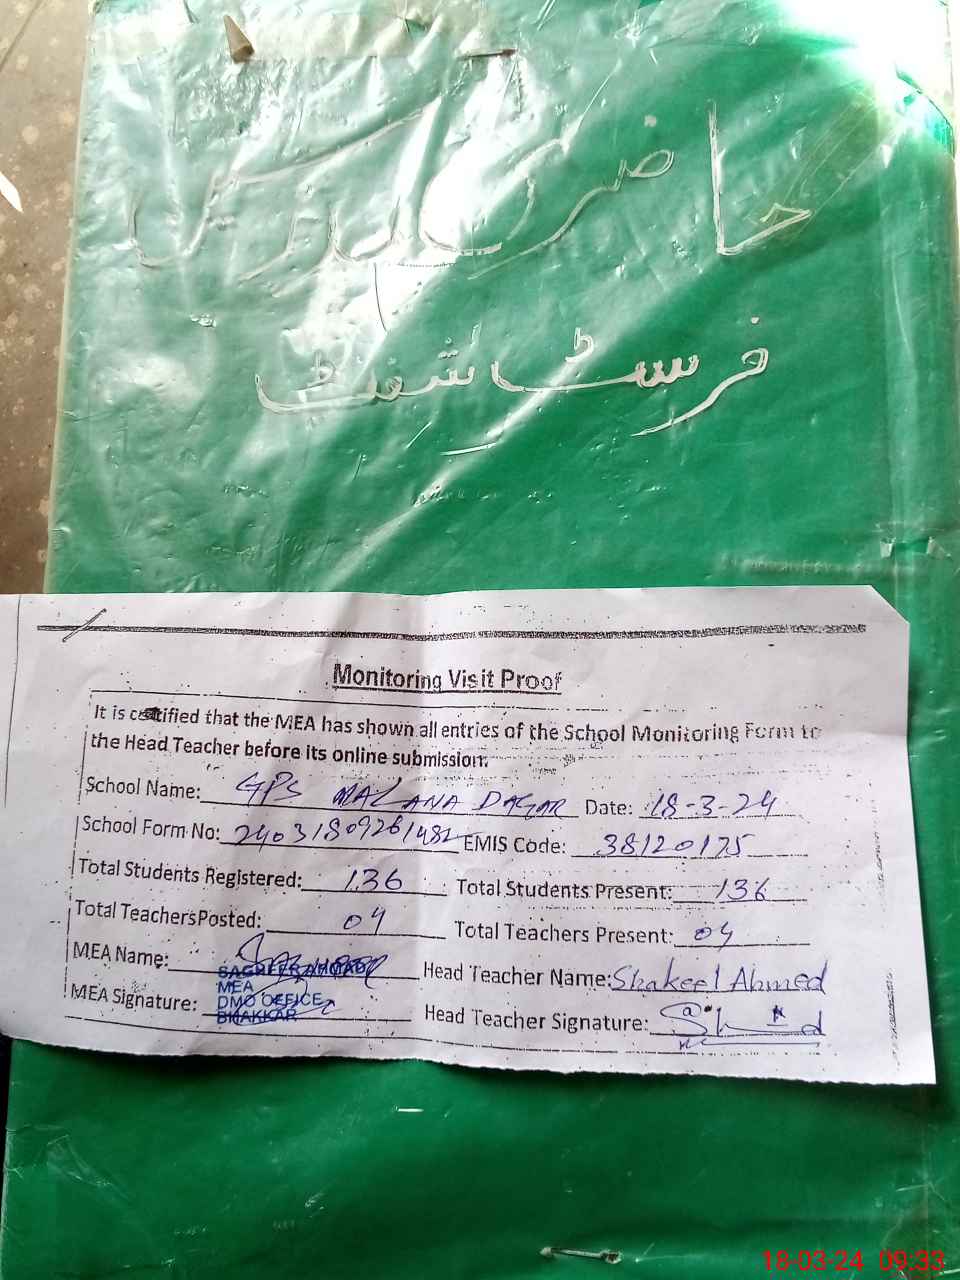 حاضری مدرسین
فرسٹ شفٹ
Monitoring Visit Proof
It is certified that the MEA has shown all entries of the School Monitoring Form to
the Head Teacher before its online submission.
School Name: GPS MALANA DAGAR Date: 18-3-24
School Form No: 24031809261482 EMIS Code: 38120175
Total Students Registered: 136 Total Students Present: 136
Total Teachers Posted: 04 Total Teachers Present: 04
MEA Name: SAGHEER AHMAD Head Teacher Name: Shakeel Ahmed
MEA
MEA Signature: DMO OFFICE Head Teacher Signature:
BHAKKAR
18-03-24 09:33